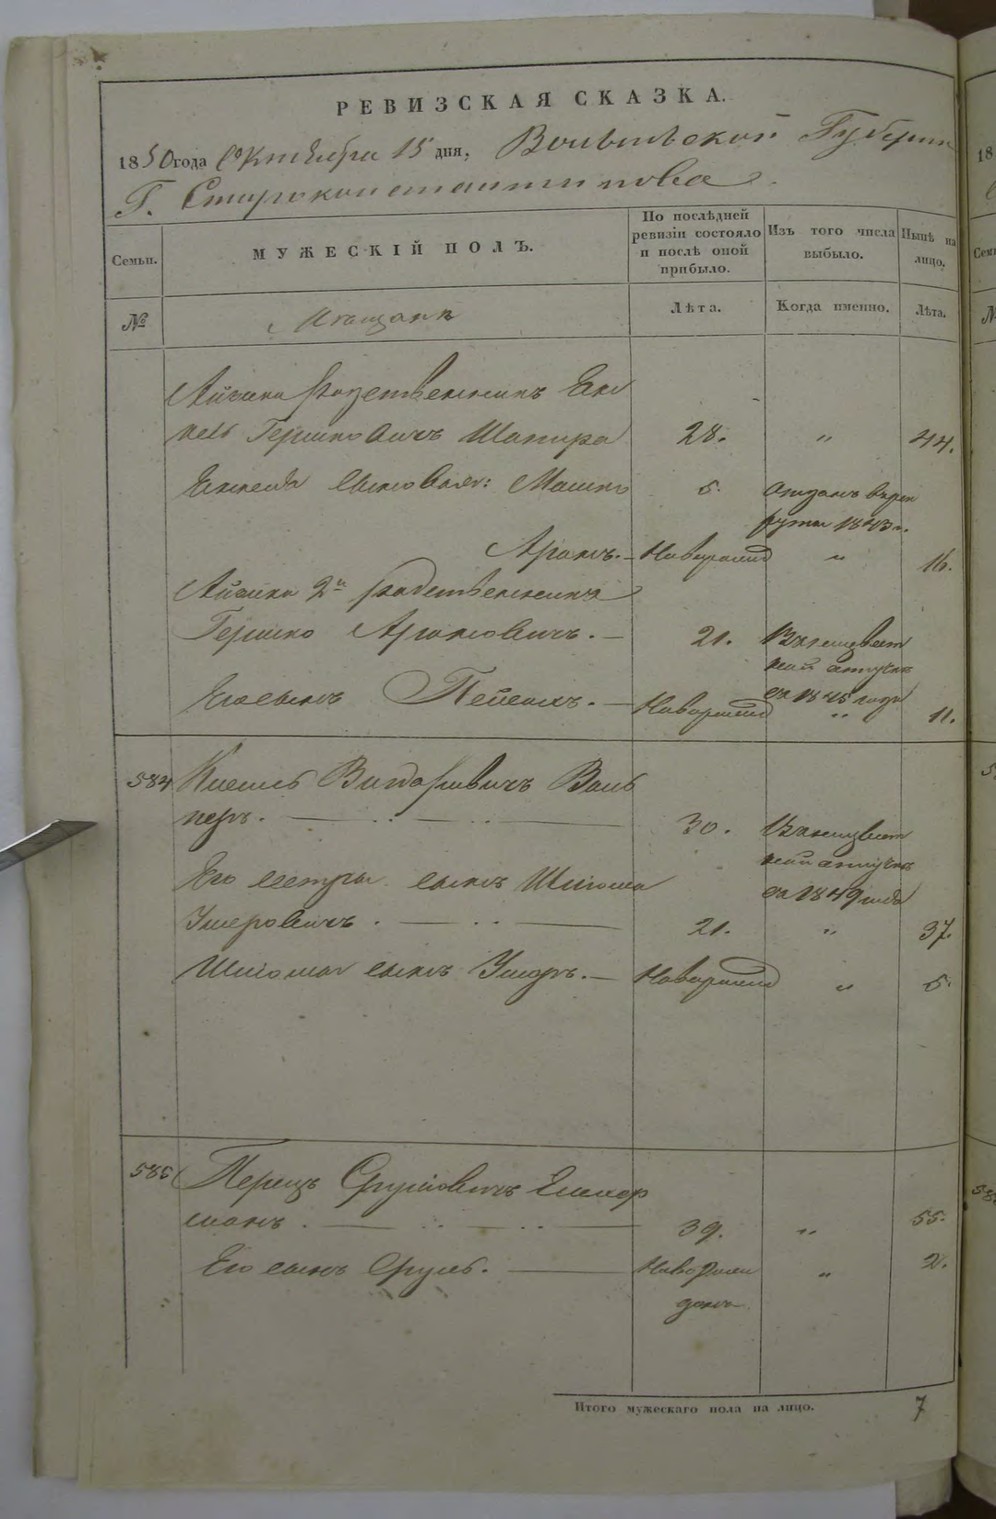 РЕВИЗСКАЯ СКАЗКА.
1850 года Октября 15 дня, Волынской Губернии
Г. Староконстантинова
Семьи.
МУЖЕСКІЙ ПОЛЪ.
По послѣдней ревизіи состояло и послѣ оной прибыло.
Изъ того числа выбыло.
Нынѣ на лицо.
№
Мѣщане
Лѣта.
Когда именно.
Лѣта.
Айзика родственникъ Ян
кель Гершковичъ Шапира 28. " 44.
Янкеля сыновья: Мошко 5. отданъ в рек
руты 1843 г.
Аронъ. — Новорожд " 16.
Айзика 2й родственникъ
Гершко Ароновичъ. — 21. Въ неизвест
ной отлучке
съ 1845 года
Его сынъ Пейсахъ. — Новорожд " 11.
584 Кисель Вигдоровичъ Валь
перъ. 30. Въ неизвест
ной отлучке
съ 1849 года
Его сестры сынъ Шлиома
Умеровичъ. 21. " 37.
Шлиомы сынъ Умеръ. — Новорожд " 5.
585 Перецъ Сруліовичъ
манъ. 39. " 55.
Его сынъ Сруль. Новорож " 2.
денъ
Итого мужескаго пола на лицо. 7